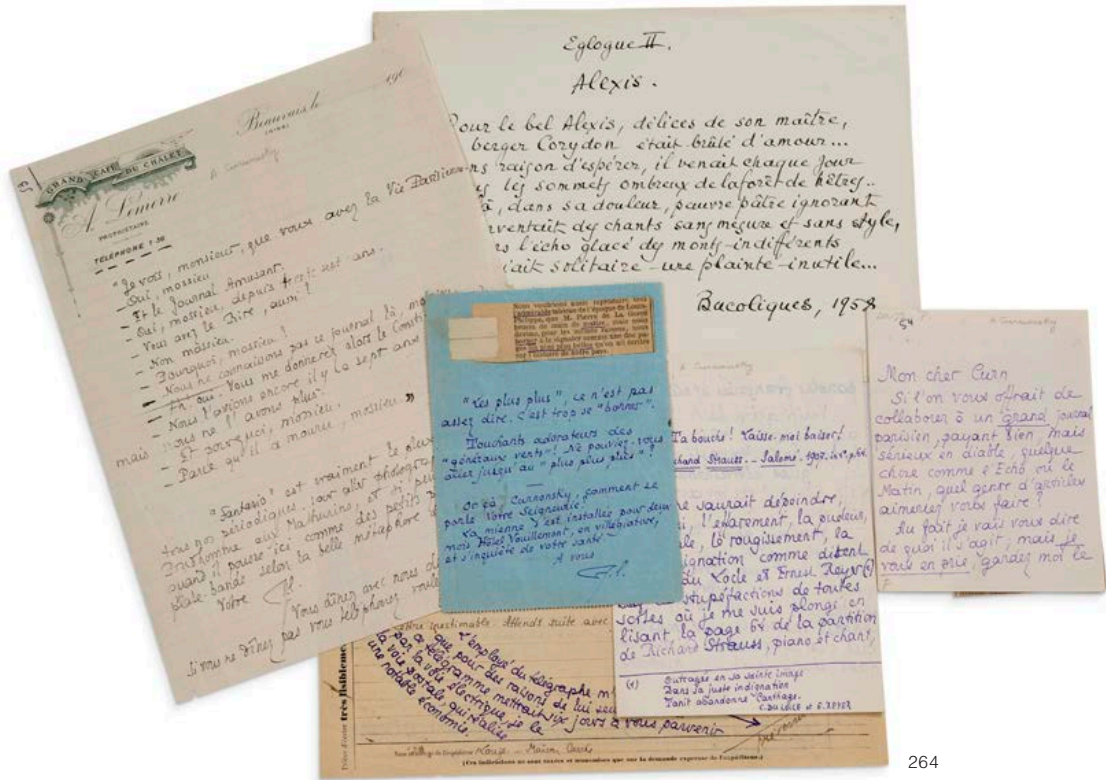 Eglogue II.
Alexis.
Pour le bel Alexis, délices de son maître,
berger Corydon était brûlé d'amour...
ns raison d'espérer, il venait chaque jour
les sommets ombreux de la forêt de hêtres..
là, dans sa douleur, pauvre pâtre ignorant
ventait des chants sans mesure et sans style,
rs l'écho glacé des monts-indifférents
solitaire - une plainte - inutile...
Bucoliques, 1958
Beauvais, le 190
(OISE)
A Curnonsky
GRAND CAFÉ DU CHALET
A. Lemerre
PROPRIÉTAIRE
TÉLÉPHONE 1-36
"Je vois, monsieur, que vous avez la Vie Parisienne
- Oui, mossieu.
- Et le Journal Amusant.
- Oui, mossieu, depuis trente sept ans.
- Vous avez le Rire, aussi?
- Non mossieu.
- Pourquoi, mossieu?
- Nous ne connaissons pas ce journal là,
- Ah. oui. Vous me donnerez alors le
- Nous l'avions encore il y a sept ans
mais nous ne l'avons plus.
- Et pourquoi, mossieu,
- Parce qu'il a mouru, mossieu."
"Fantasio" est vraiment le plus
tous nos périodiques, pour aller
Prudhomme aux Mathurins, et
quand il pousse ici comme des petits
plate-bande selon la belle métaphore
Votre
Vous dînez avec nous
Si vous ne dînez pas vous téléphonez
Nous voudrions aussi reproduire
Philippe, que M. Pierre de La Gorce
"Les plus plus", ce n'est pas
assez dire. C'est trop se "borner".
Touchants adorateurs des
"généraux verts"! Ne pouviez-vous
aller jusqu'au "plus plus plus"?
Or çà, Curnonsky, comment se
porte Votre Seigneurie?
La mienne s'est installée pour deux
mois Hôtel Vouillemont, en villégiature,
et s'inquiète de votre santé.
A vous
A Curnonsky
Ta bouche! Laisse-moi baiser!
chard Strauss. - Salomé. 1907.
ne saurait dépeindre,
l'effarement, la pudeur,
le rougissement, la
ignation comme disent
du Locle et Ernest Reyer (1)
stupéfactions de toutes
sortes où je me suis plongé en
lisant la page 68 de la partition
de Richard Strauss, piano et chant,
(1) Outragée en sa sainte image
Dans sa juste indignation
Tanit abandonne Carthage.
C. DU LOCLE et E. REYER
A Curnonsky
Mon cher Curn
Si l'on vous offrait de
collaborer à un grand journal
parisien, payant bien, mais
sérieux en diable, quelque
chose comme l'Echo ou le
Matin, quel genre d'articles
aimeriez vous faire?
Au fait je vais vous dire
de quoi il s'agit, mais je
vous en prie, gardez moi le
inestimable. Attends suite avec
L'employé du télégraphe m'
que pour des raisons de lui seul
ce télégramme mettrait six jours à vous parvenir
par la voie électrique, je le
la voie postale, qui réalise
une notable économie.
très lisiblement
(Ces indications ne sont taxées et transmises que sur la demande expresse de l'expéditeur.)
264